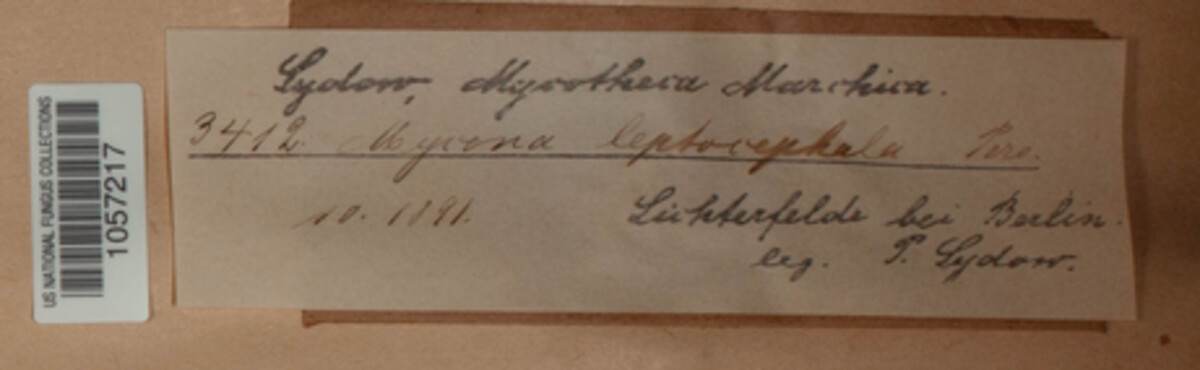 US NATIONAL FUNGUS COLLECTIONS
1057217
Sydow, Mycotheca Marchica.
3412. Mycena leptocephala Pers.
10. 1891.
Lichterfelde bei Berlin.
leg. P. Sydow.